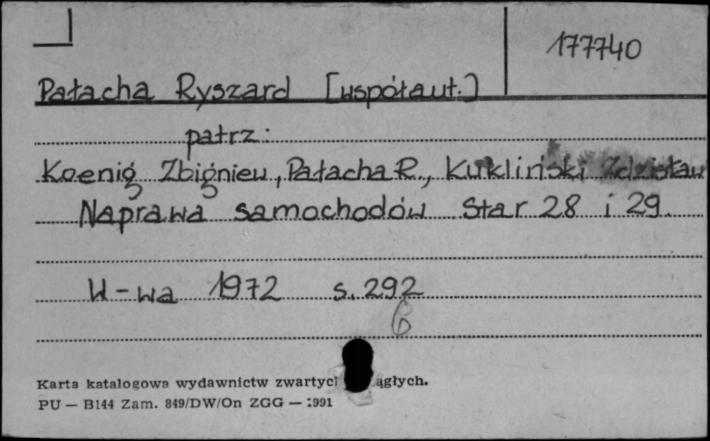 177740
Pałacha Ryszard [współaut.]
patrz:
Koenig Zbigniew, Pałacha R., Kukliński Zdzisław
Naprawa samochodów Star 28 i 29.
W-wa 1972 s. 292
6
Karta katalogowa wydawnictw zwartych ągłych.
PU — B144 Zam. 849/DW/On ZGG — 1991